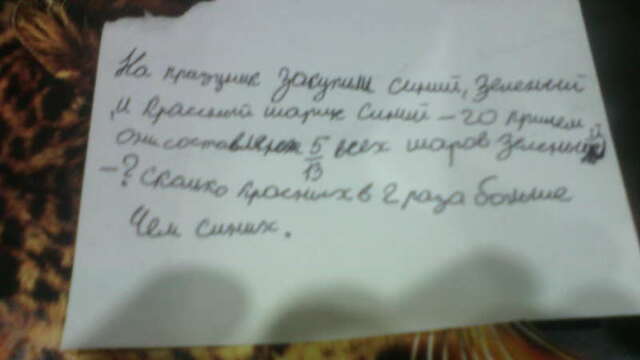 На праздник закупили синий, зеленый
, и красный шарик синий – 20 причем
они составляют 5/13 всех шаров зелений
– ? сколко красных в 2 раза больше
Чем синих.